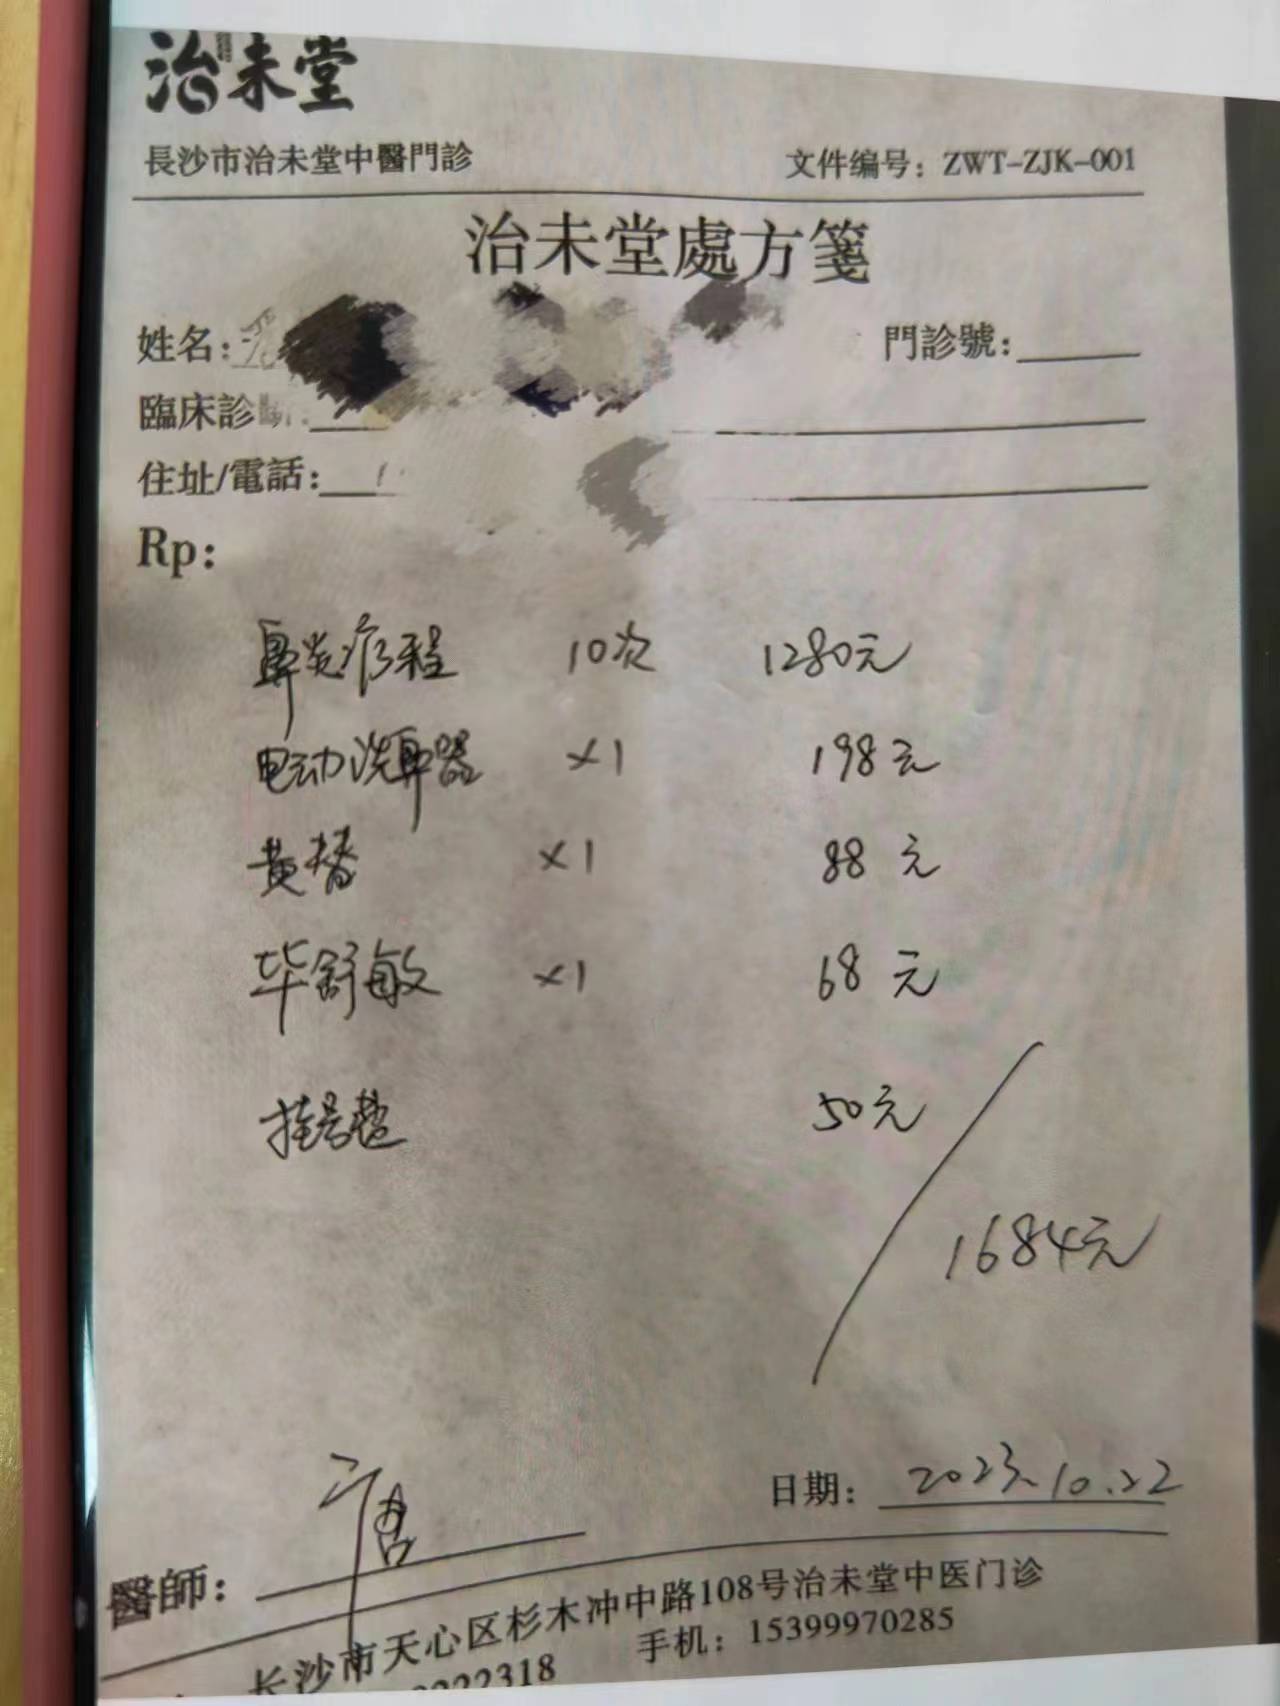 治未堂
長沙市治未堂中醫門診 文件编号：ZWT-ZJK-001
治未堂處方箋
姓名： 門診號：
臨床診斷：
住址/電話：
Rp：
鼻炎疗程 10次 1280元
电动洗鼻器 ×1 198元
黄替 ×1 88元
毕舒敏 ×1 68元
挂号费 50元
1684元
日期：2023.10.22
醫師：
长沙市天心区杉木冲中路108号治未堂中医门诊
222318 手机：15399970285